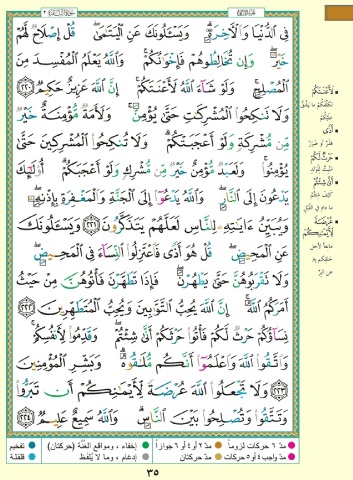 فِى ٱلدُّنْيَا وَٱلْءَاخِرَةِ ۗ وَيَسْـَٔلُونَكَ عَنِ ٱلْيَتَـٰمَىٰ ۖ قُلْ إِصْلَاحٌ لَّهُمْ
خَيْرٌ ۖ وَإِن تُخَالِطُوهُمْ فَإِخْوَٰنُكُمْ ۚ وَٱللَّهُ يَعْلَمُ ٱلْمُفْسِدَ مِنَ
ٱلْمُصْلِحِ ۚ وَلَوْ شَآءَ ٱللَّهُ لَأَعْنَتَكُمْ ۚ إِنَّ ٱللَّهَ عَزِيزٌ حَكِيمٌ ٢٢٠
وَلَا تَنكِحُوا۟ ٱلْمُشْرِكَـٰتِ حَتَّىٰ يُؤْمِنَّ ۚ وَلَأَمَةٌ مُّؤْمِنَةٌ خَيْرٌ
مِّن مُّشْرِكَةٍ وَلَوْ أَعْجَبَتْكُمْ ۗ وَلَا تُنكِحُوا۟ ٱلْمُشْرِكِينَ حَتَّىٰ
يُؤْمِنُوا۟ ۚ وَلَعَبْدٌ مُّؤْمِنٌ خَيْرٌ مِّن مُّشْرِكٍ وَلَوْ أَعْجَبَكُمْ ۗ أُو۟لَـٰٓئِكَ
يَدْعُونَ إِلَى ٱلنَّارِ ۖ وَٱللَّهُ يَدْعُوٓا۟ إِلَى ٱلْجَنَّةِ وَٱلْمَغْفِرَةِ بِإِذْنِهِۦ ۖ
وَيُبَيِّنُ ءَايَـٰتِهِۦ لِلنَّاسِ لَعَلَّهُمْ يَتَذَكَّرُونَ ٢٢١ وَيَسْـَٔلُونَكَ
عَنِ ٱلْمَحِيضِ ۖ قُلْ هُوَ أَذًى فَٱعْتَزِلُوا۟ ٱلنِّسَآءَ فِى ٱلْمَحِيضِ ۖ
وَلَا تَقْرَبُوهُنَّ حَتَّىٰ يَطْهُرْنَ ۖ فَإِذَا تَطَهَّرْنَ فَأْتُوهُنَّ مِنْ حَيْثُ
أَمَرَكُمُ ٱللَّهُ ۚ إِنَّ ٱللَّهَ يُحِبُّ ٱلتَّوَّٰبِينَ وَيُحِبُّ ٱلْمُتَطَهِّرِينَ ٢٢٢
نِسَآؤُكُمْ حَرْثٌ لَّكُمْ فَأْتُوا۟ حَرْثَكُمْ أَنَّىٰ شِئْتُمْ ۖ وَقَدِّمُوا۟ لِأَنفُسِكُمْ ۚ
وَٱتَّقُوا۟ ٱللَّهَ وَٱعْلَمُوٓا۟ أَنَّكُم مُّلَـٰقُوهُ ۗ وَبَشِّرِ ٱلْمُؤْمِنِينَ
٢٢٣ وَلَا تَجْعَلُوا۟ ٱللَّهَ عُرْضَةً لِّأَيْمَـٰنِكُمْ أَن تَبَرُّوا۟
وَتَتَّقُوا۟ وَتُصْلِحُوا۟ بَيْنَ ٱلنَّاسِ ۗ وَٱللَّهُ سَمِيعٌ عَلِيمٌ ٢٢٤
لَأَعْنَتَكُمْ
أَذًى
حَرْثٌ لَّكُمْ
أَنَّىٰ شِئْتُمْ
عُرْضَةً
لِّأَيْمَـٰنِكُمْ
مدّ ٦ حركات لزوماً مدّ ٢ أو ٤ أو ٦ جوازاً إخفاء، ومواقع الغُنَّة (حركتان) تفخيم
مدّ واجب ٤ أو ٥ حركات مدّ حركتان إدغام، وما لا يُلفَظ قلقلة
٣٥